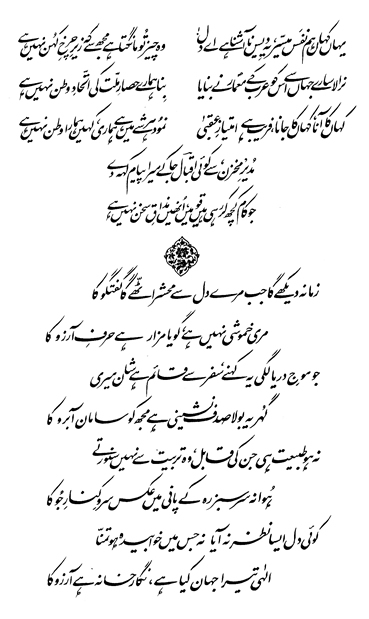 یہاں کہاں ہم نفس میسّر، یہ دیس نا آشنا ہے اے دل! وہ چیز تُو مانگتا ہے مجھ سے کہ زیرِ چرخِ کہن نہیں ہے
نرالا سارے جہاں سے اس کو عرب کے معمار نے بنایا بِنا ہمارے حصارِ ملّت کی اتّحادِ وطن نہیں ہے
کہاں کا آنا، کہاں کا جانا، فریب ہے امتیازِ عقبیٰ نمود ہر شے میں ہے ہماری، کہیں ہمارا وطن نہیں ہے
مُدیرِ مخزن سے کوئی اقبال جا کے میرا پیام کہہ دے
جو کام کچھ کر رہی ہیں قومیں، اُنھیں مذاقِ سخن نہیں ہے
زمانہ دیکھے گا جب مرے دل سے محشر اٹھّے گا گفتگو کا
مری خموشی نہیں ہے، گویا مزار ہے حرفِ آرزو کا
جو موجِ دریا لگی یہ کہنے، سفر سے قائم ہے شان میری
گُہر یہ بولا صدف نشینی ہے مجھ کو سامان آبرو کا
نہ ہو طبیعت ہی جن کی قابل، وہ تربیت سے نہیں سنورتے
ہُوا نہ سرسبز رہ کے پانی میں عکس سروِ کنارِ جُو کا
کوئی دل ایسا نظر نہ آیا نہ جس میں خوابیدہ ہو تمنّا
الٰہی تیرا جہان کیا ہے، نگار خانہ ہے آرزو کا